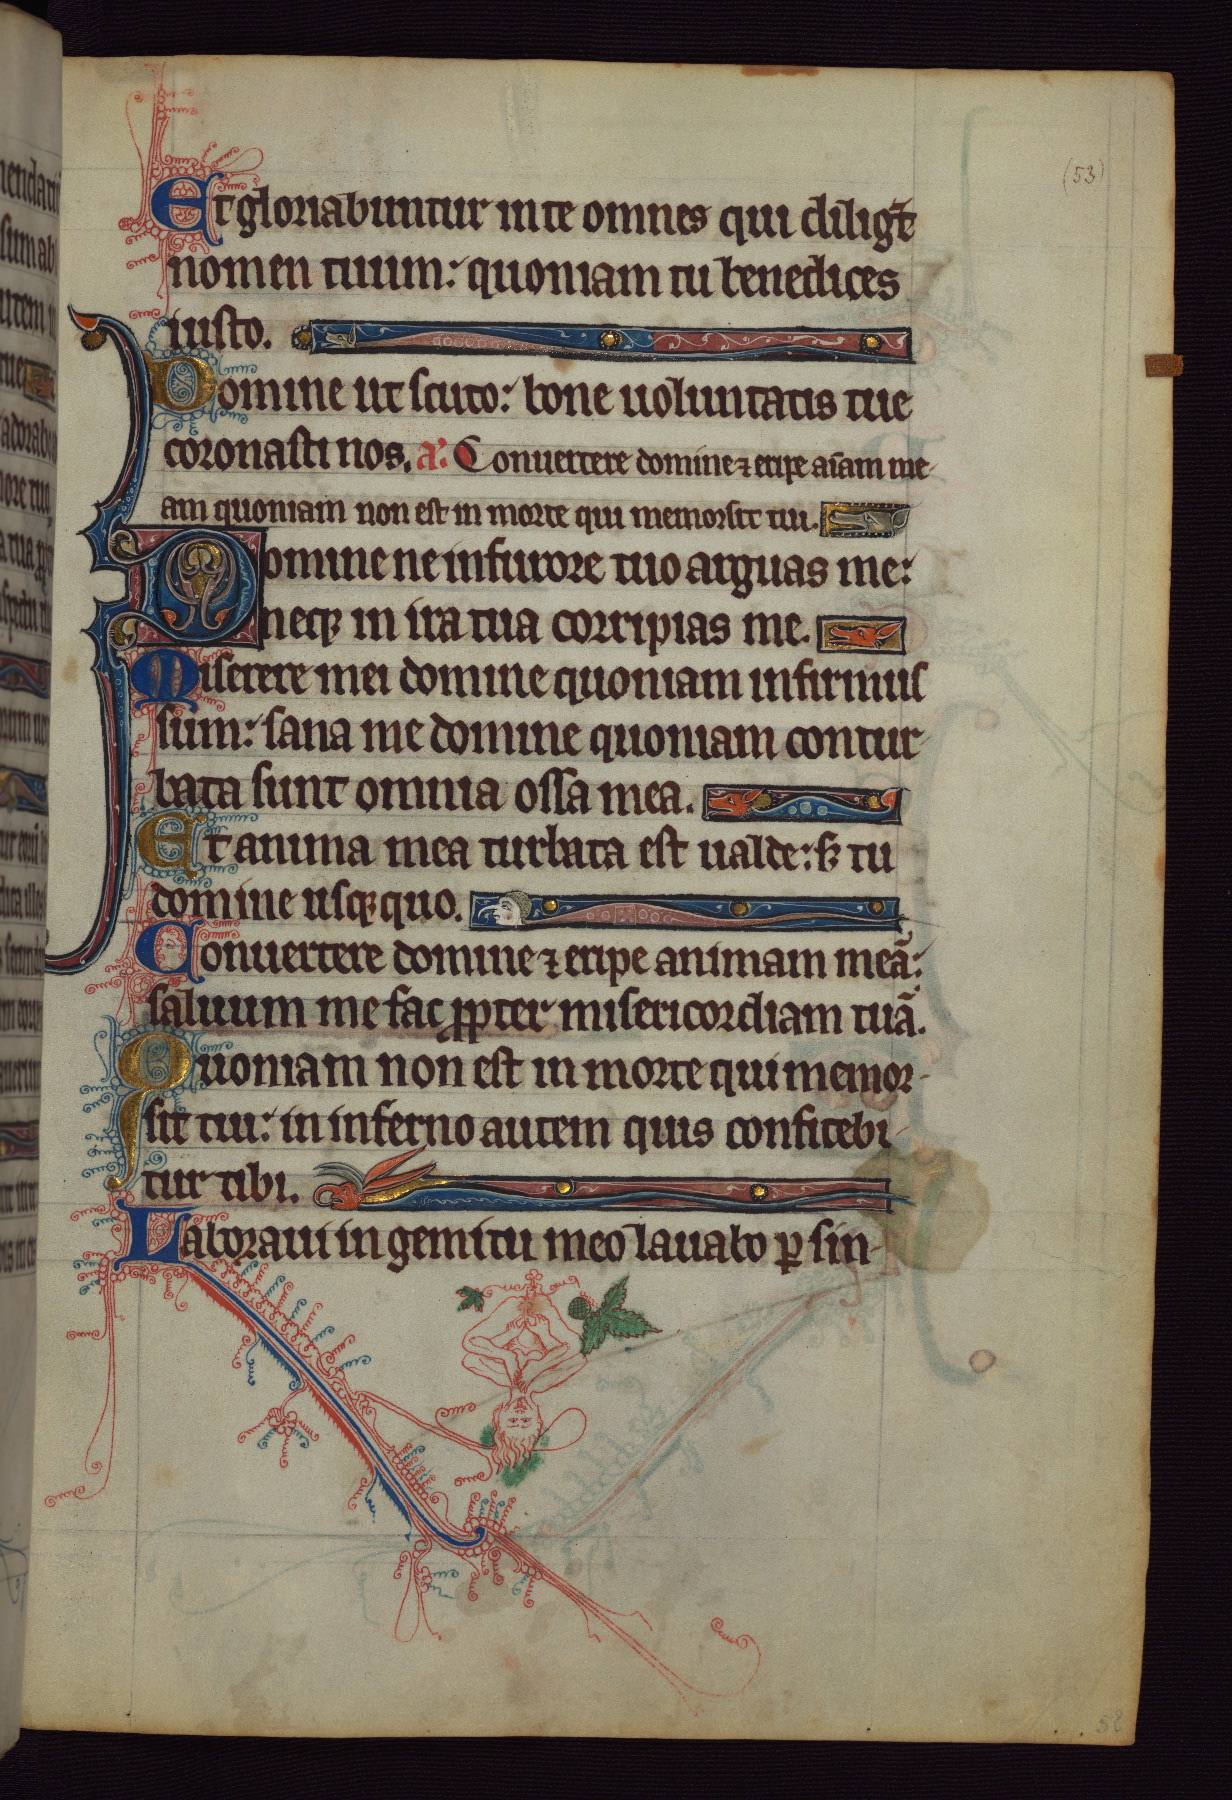 (53)
Et gloriabuntur in te omnes qui diligēt
nomen tuum: quoniam tu benedices
iusto.
Domine ut scuto: bone uoluntatis tue
coronasti nos. a. Conuertere domine ⁊ eripe aīam me-
am quoniam non est in morte qui memor sit tui.
Domine ne in furore tuo arguas me:
neqꝫ in ira tua corripias me.
Miserere mei domine quoniam infirmus
sum: sana me domine quoniam contur-
bata sunt omnia ossa mea.
Et anima mea turbata est ualde: sꝫ tu
domine usqꝫquo.
Conuertere domine ⁊ eripe animam meā:
saluum me fac ꝓpter misericordiam tuā.
Quoniam non est in morte qui memor
sit tui: in inferno autem quis confitebi-
tur tibi.
Laboraui in gemitu meo lauabo ꝑ sin-